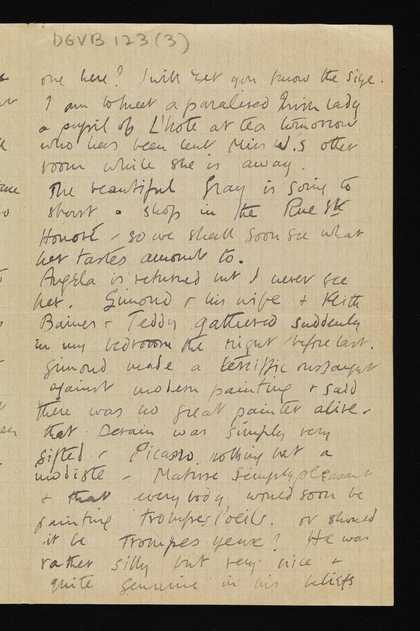 DGVB 123 (3)
one here? I will let you know the size.
I am to meet a paralised Irish lady
a pupil of L'hote at tea tomorrow
who has been lent Miss W.s other
room while she is away.
The beautiful Gray is going to
start a shop in the Rue St
Honoré - so we shall soon see what
her tastes amount to.
Angela is returned but I never see
her. Gimond & his wife & Keith
Baines & Teddy gathered suddenly
in my bedroom the night before last.
Gimond made a terrific onslaught
against modern painting & said
there was no great painter alive -
that Derain was simply very
gifted - Picasso nothing but a
modiste - Matisse simply pleasant
& that everybody would soon be
painting trompes l'oeils. or should
it be trompes yeux? He was
rather silly but very nice &
quite genuine in his beliefs